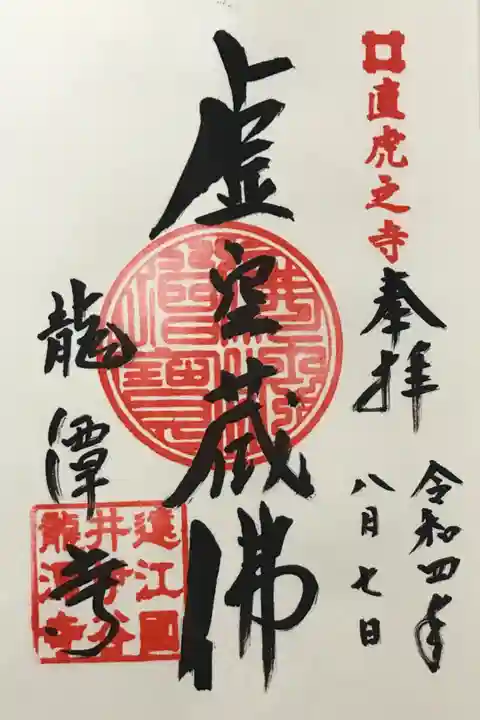 直虎之寺
奉拝
令和四年
八月七日
虚空蔵佛
佛法僧寶
龍潭寺
遠江國
井伊谷
龍潭寺